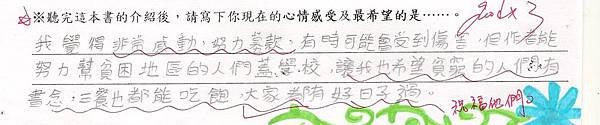 ※聽完這本書的介紹後，請寫下你現在的心情感受及最希望的是……。 good x 3
我覺得非常感動，努力募款，有時可能會受到傷害，但作者能
努力幫貧困地區的人們蓋學校，讓我也希望貧窮的人們有
書念，三餐也都能吃飽，大家都有好日子過。 祝福他們。